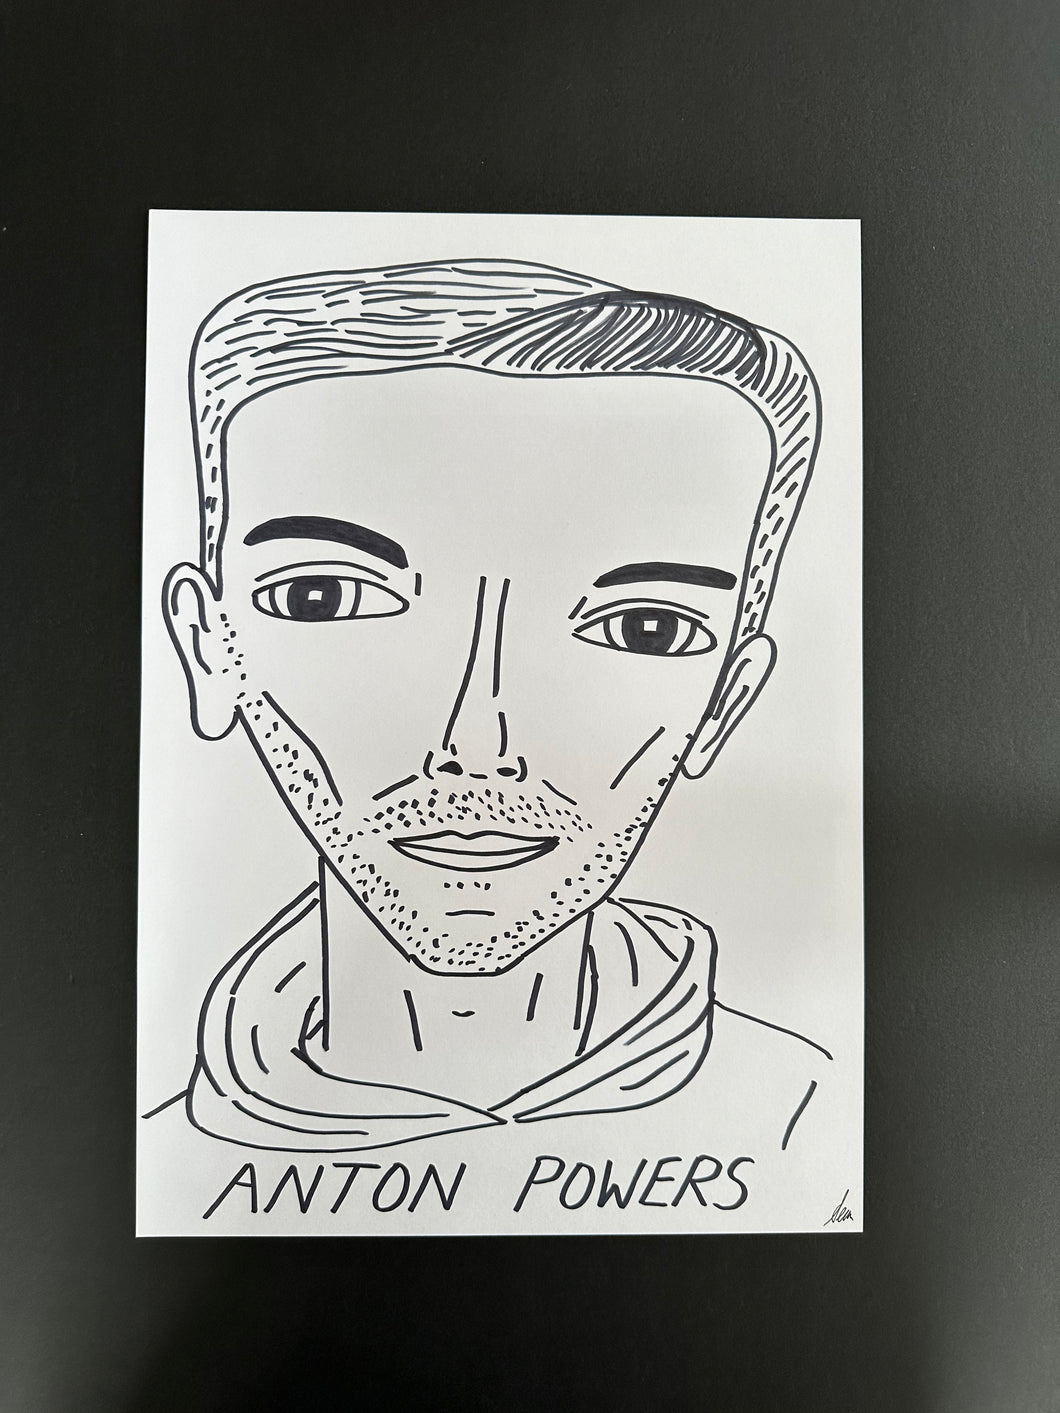 ANTON POWERS